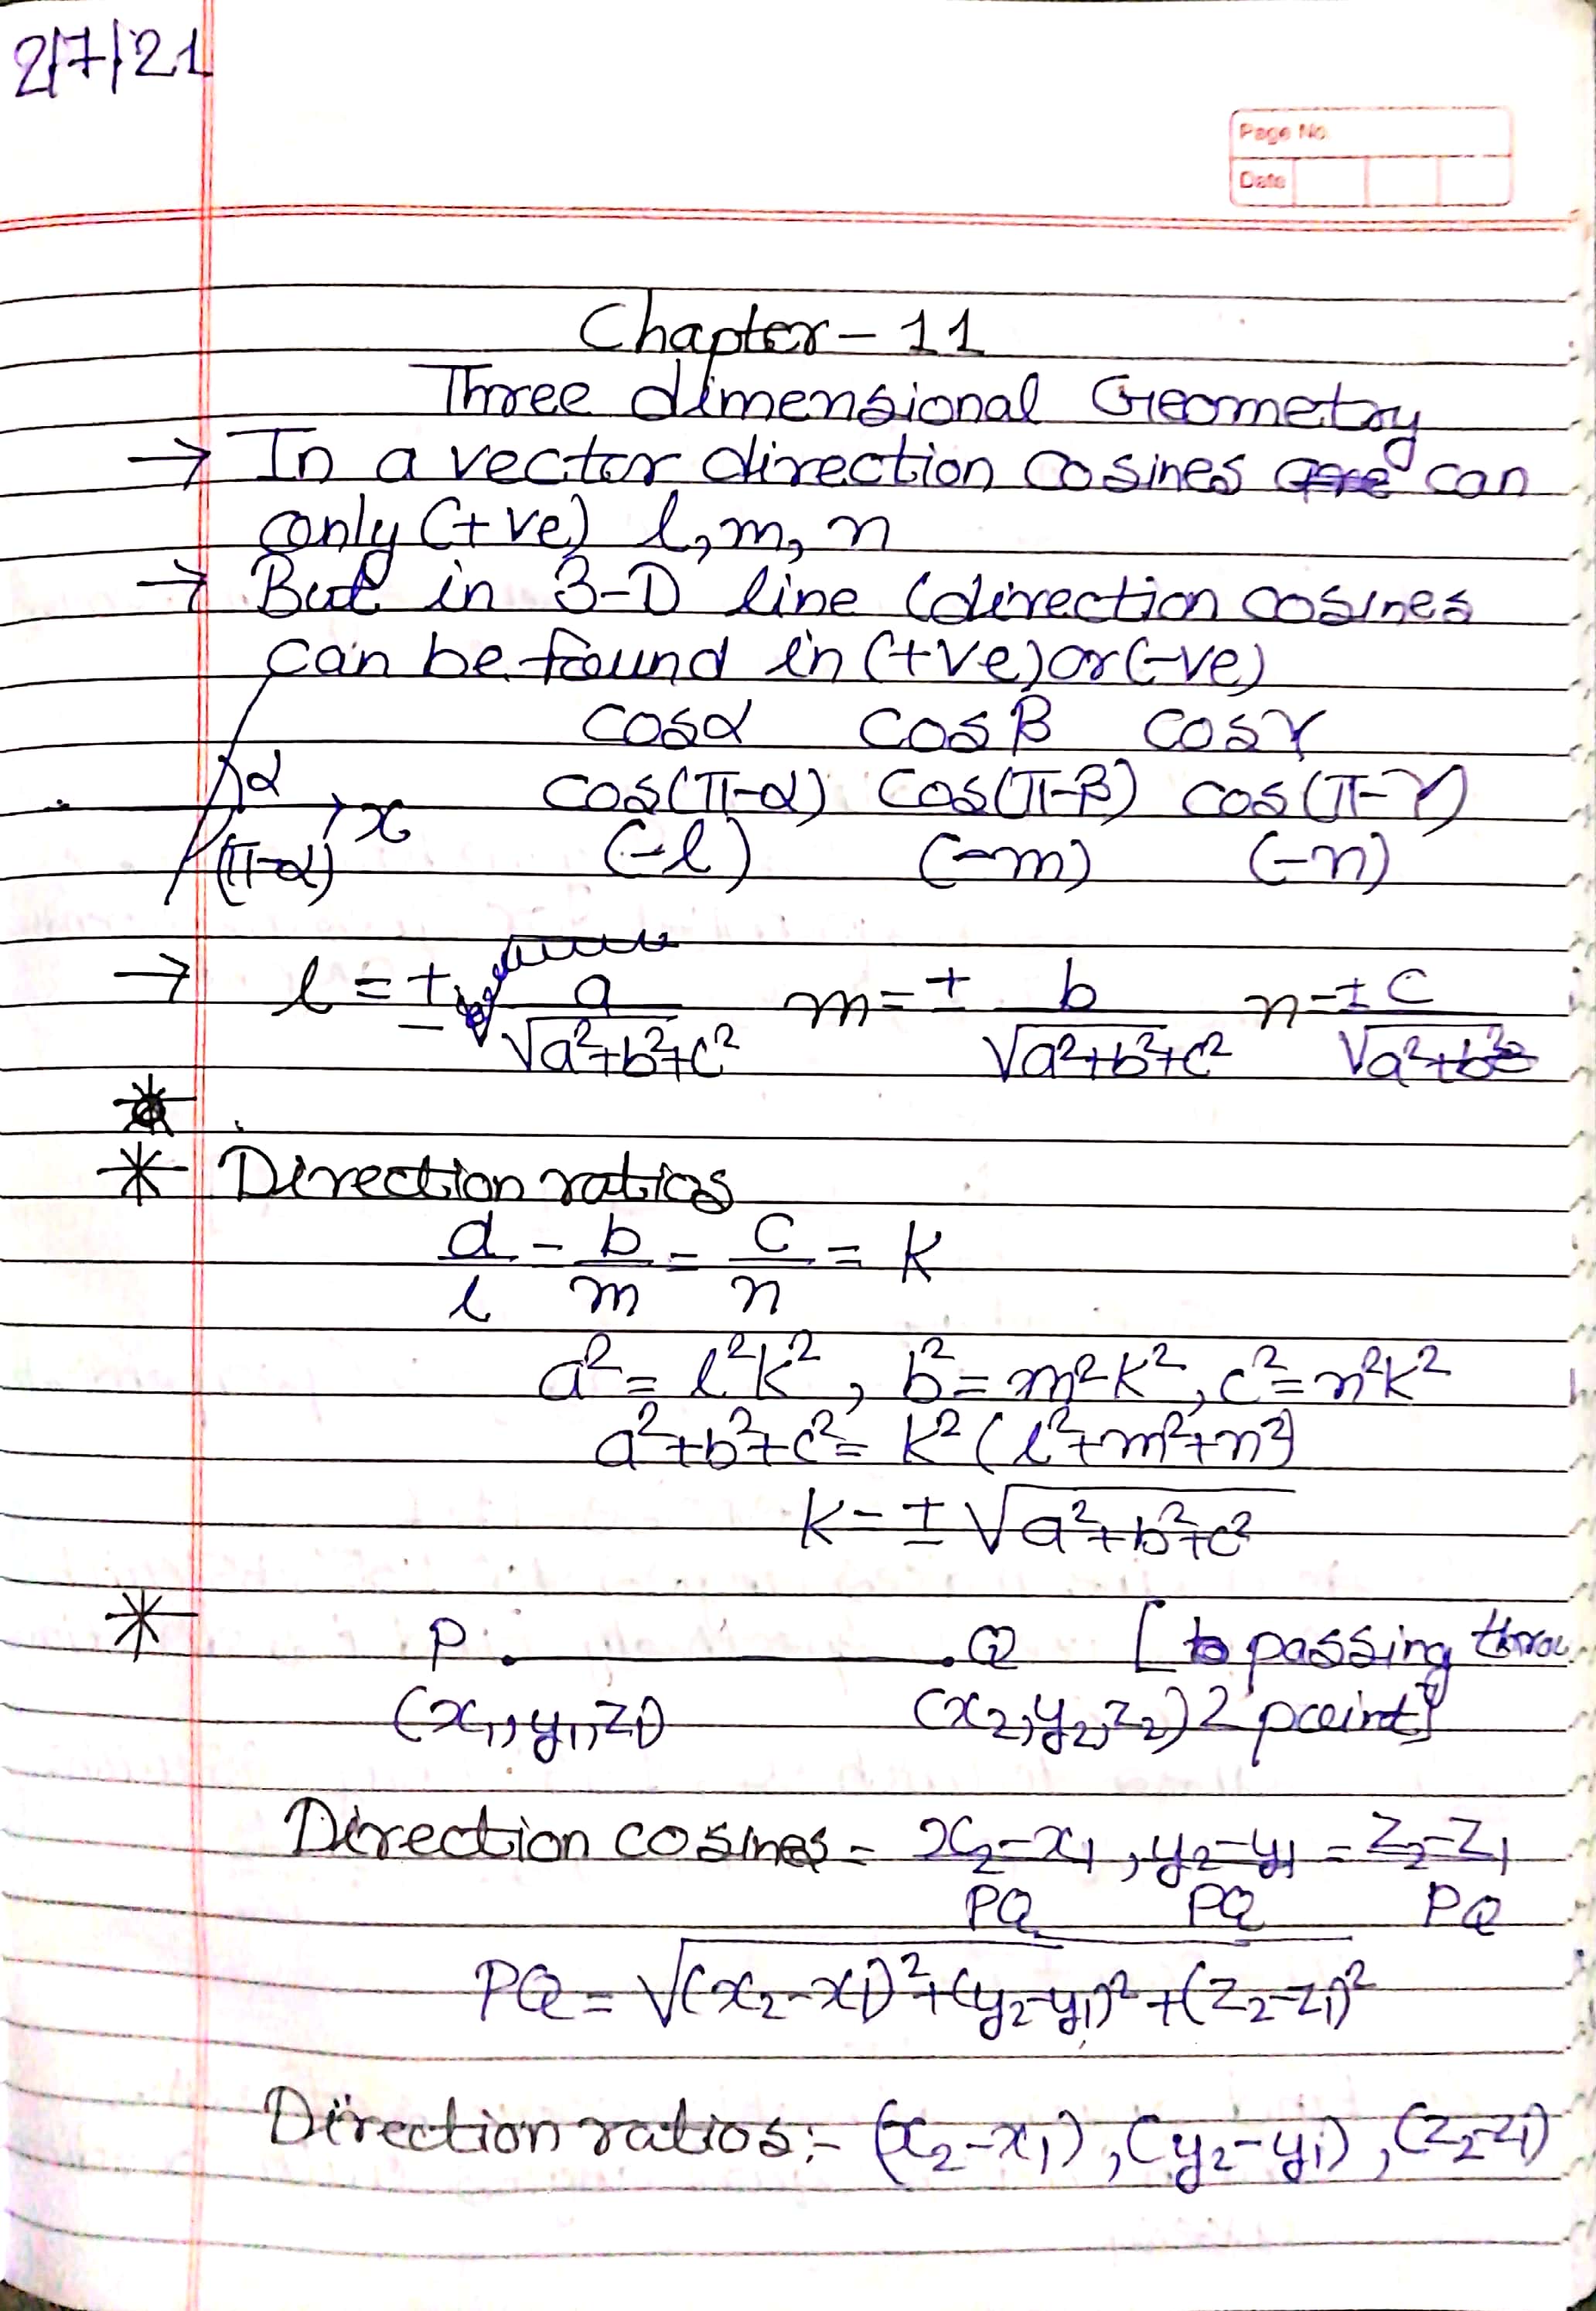 2/7/21
Page No
Date
Chapter - 11
Three dimensional Geometry
→ In a vector direction cosines can
only (+ve) l, m, n
→ But in 3-D line (direction cosines
can be found in (+ve) or (-ve)
cosα cosβ cosγ
α cos(π-α) cos(π-β) cos(π-γ)
x
(π-α) (-l) (-m) (-n)
→ l = ± a/√a²+b²+c² m = ± b/√a²+b²+c² n = ± c/√a²+b²
* Direction ratios
a/l = b/m = c/n = k
a² = l²k², b² = m²k², c² = n²k²
a²+b²+c² = k² (l²+m²+n²)
k = ± √a²+b²+c²
* P Q [ passing throu
(x₁, y₁, z₁) (x₂, y₂, z₂) 2 point]
Direction cosines = x₂-x₁/PQ, y₂-y₁/PQ = z₂-z₁/PQ
PQ = √(x₂-x₁)²+(y₂-y₁)²+(z₂-z₁)²
Direction ratios:- (x₂-x₁), (y₂-y₁), (z₂-z₁)